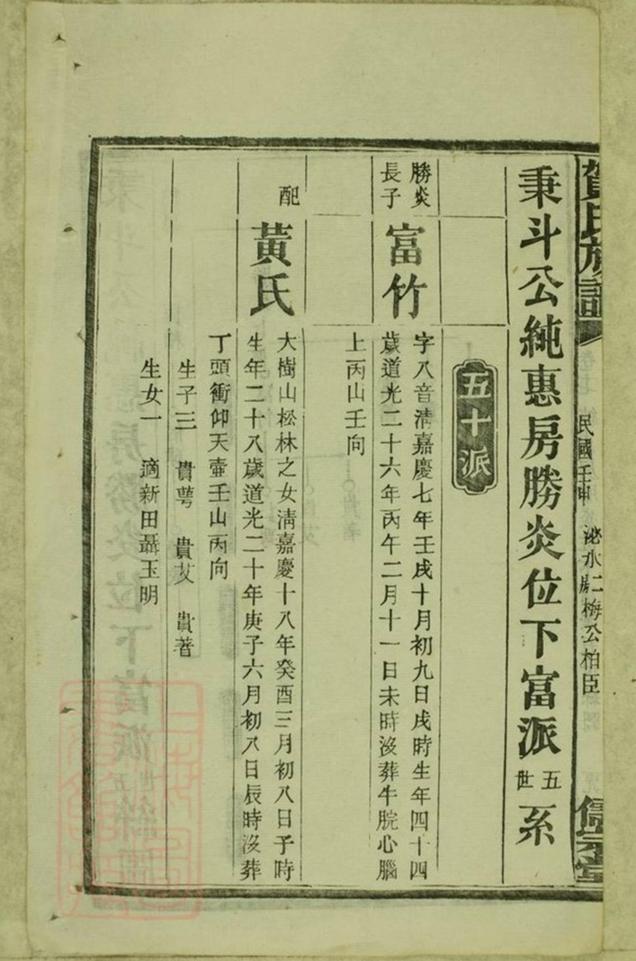 賀氏族譜
民國壬申
泌水二房梅公柏臣
秉斗公純惠房勝炎位下富派五世系
五十派
勝炎長子
富竹
字八音清嘉慶七年壬戌十月初九日戌時生年四十四
歲道光二十六年丙午二月十一日未時沒葬牛脘心腦
上丙山壬向
配
黃氏
大樹山松林之女清嘉慶十八年癸酉三月初八日子時
生年二十八歲道光二十年庚子六月初八日辰時沒葬
丁頭衝仰天壺壬山丙向
生子三 貴萼 貴艾 貴著
生女一 適新田聶玉明